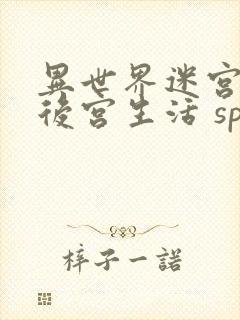 異世界迷宮
後宮生活 sp
梓子一諾